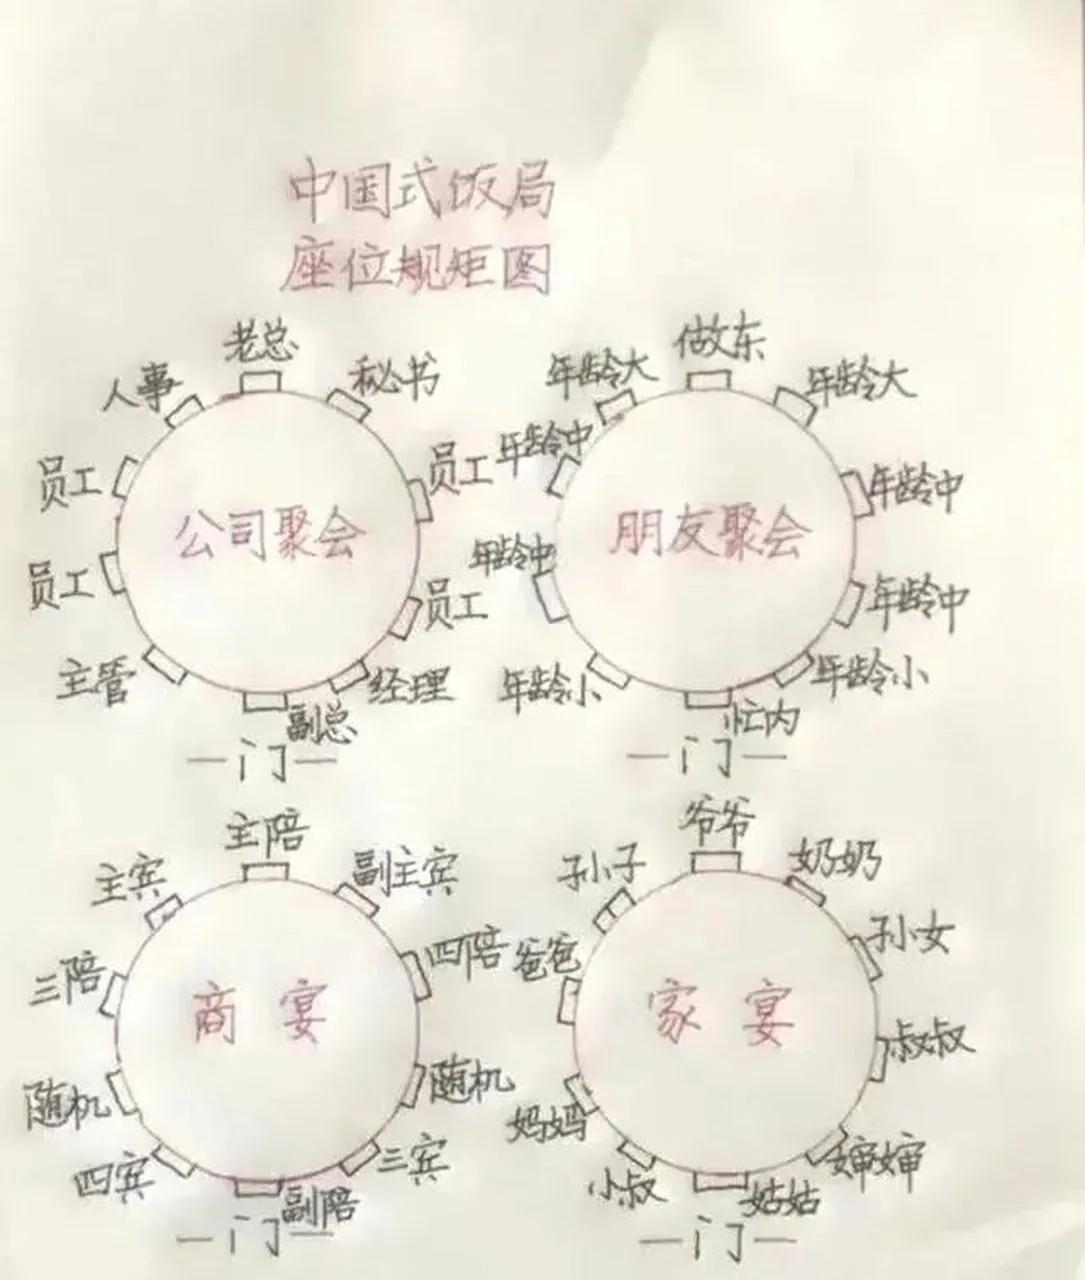 中国式饭局
座位规矩图
老总
人事
秘书
员工
员工
公司聚会
员工
员工
主管
经理
副总
门
做东
年龄大
年龄大
年龄中
年龄中
朋友聚会
年龄中
年龄中
年龄小
年龄小
忙内
门
主陪
主宾
副主宾
三陪
四陪
商宴
随机
随机
四宾
三宾
副陪
门
爷爷
孙子
奶奶
爸爸
孙女
家宴
叔叔
妈妈
婶婶
小叔
姑姑
门